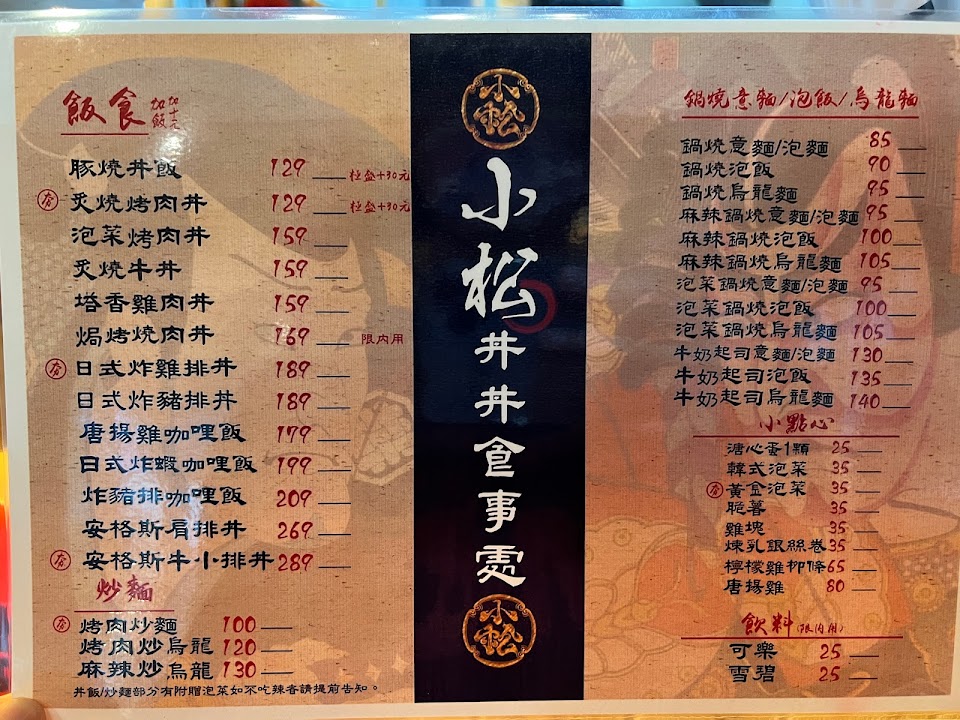 飯食 加飯加十元
豚燒丼飯 129 ___ 拉盒+30元
夯 炙燒烤肉丼 129 ___ 拉盒+30元
泡菜烤肉丼 159 ___
炙燒牛丼 159 ___
塔香雞肉丼 159 ___
焗烤燒肉丼 169 ___ 限內用
夯 日式炸雞排丼 189 ___
日式炸豬排丼 189 ___
唐揚雞咖哩飯 179 ___
日式炸蝦咖哩飯 199 ___
炸豬排咖哩飯 209 ___
安格斯肩排丼 269 ___
夯 安格斯牛小排丼 289 ___
炒麵
夯 烤肉炒麵 100 ___
烤肉炒烏龍 120 ___
麻辣炒烏龍 130 ___
丼飯/炒麵部分有附贈泡菜如不吃辣者請提前告知。
小松
小松丼丼食事處
小松
鍋燒意麵/泡飯/烏龍麵
鍋燒意麵/泡麵 85 ___
鍋燒泡飯 90 ___
鍋燒烏龍麵 95 ___
麻辣鍋燒意麵/泡麵 95 ___
麻辣鍋燒泡飯 100 ___
麻辣鍋燒烏龍麵 105 ___
泡菜鍋燒意麵/泡麵 95 ___
泡菜鍋燒泡飯 100 ___
泡菜鍋燒烏龍麵 105 ___
牛奶起司意麵/泡麵 130 ___
牛奶起司泡飯 135 ___
牛奶起司烏龍麵 140 ___
小點心
溏心蛋1顆 25 ___
韓式泡菜 35 ___
夯 黃金泡菜 35 ___
脆薯 35 ___
雞塊 35 ___
煉乳銀絲卷 35 ___
檸檬雞柳條 65 ___
唐揚雞 80 ___
飲料(限內用)
可樂 25 ___
雪碧 25 ___